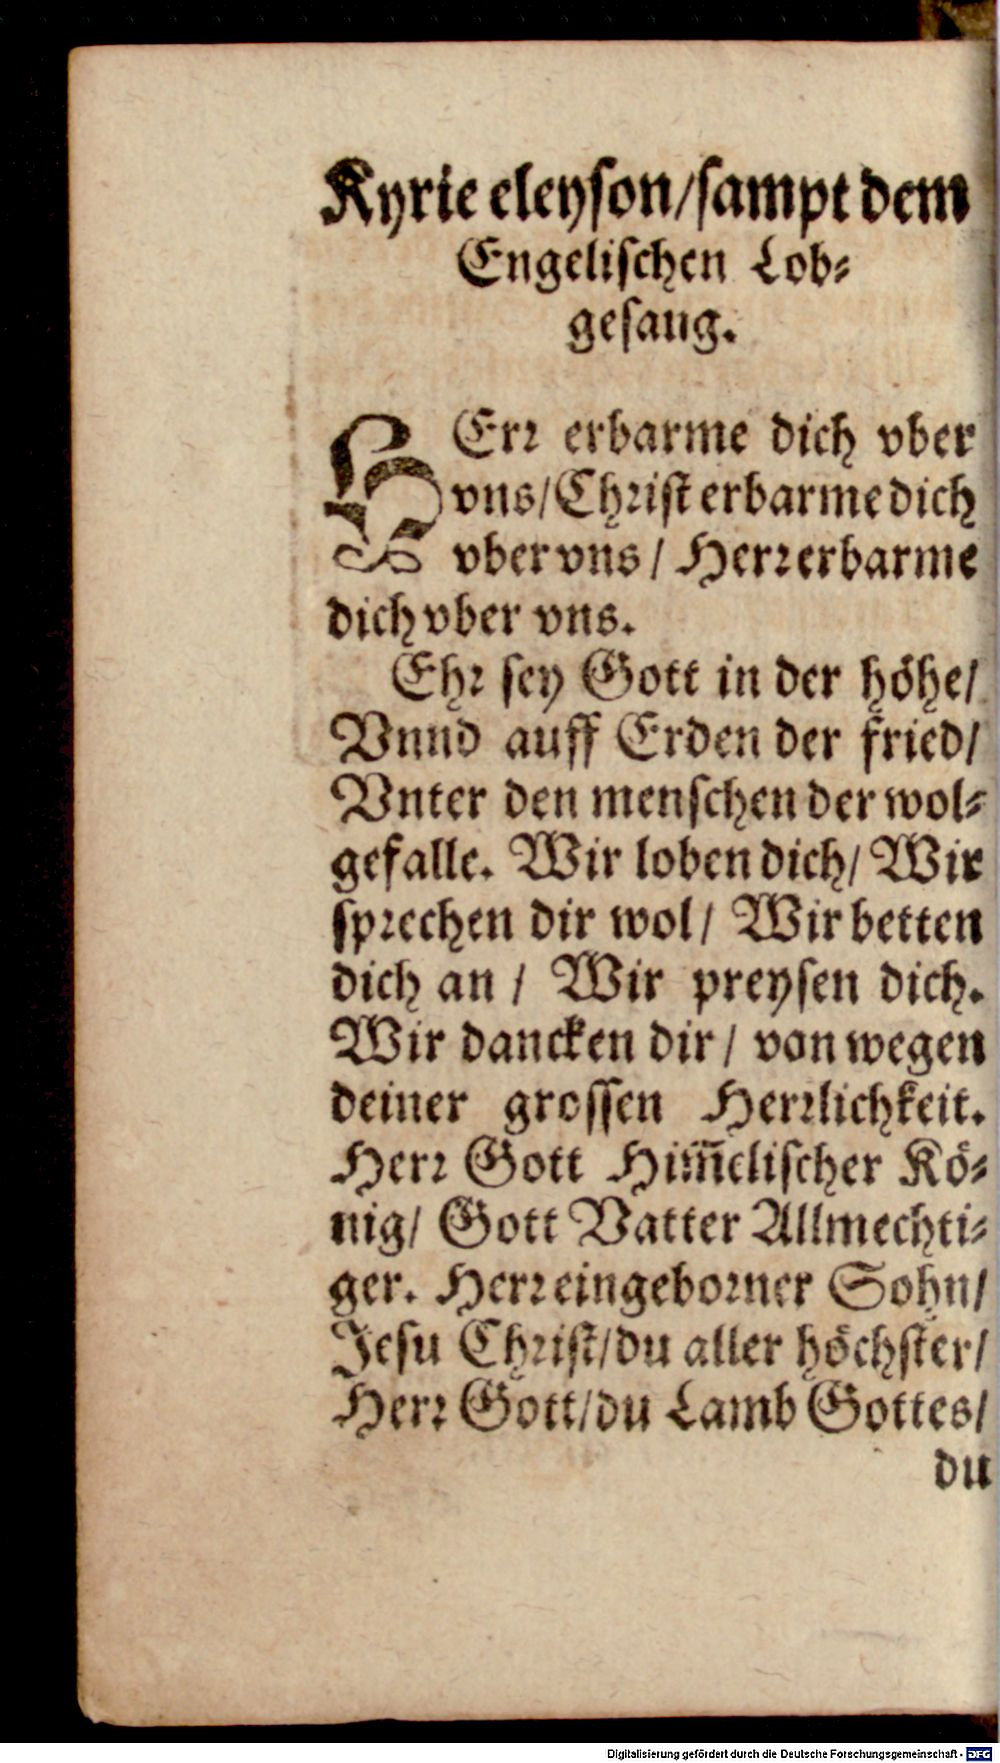 Kyrie eleyson/sampt dem
Engelischen Lob-
gesang.
HErr erbarme dich vber
vns/Christ erbarme dich
vber vns / Herr erbarme
dich vber vns.
Ehr sey Gott in der höhe/
Vnnd auff Erden der fried/
Vnter den menschen der wol-
gefalle. Wir loben dich/ Wir
sprechen dir wol/ Wir betten
dich an / Wir preysen dich.
Wir dancken dir/ von wegen
deiner grossen Herrlichkeit.
Herr Gott Him̅elischer Kö-
nig/ Gott Vatter Allmechti-
ger. Herr eingeborner Sohn/
Jesu Christ/du aller höchster/
Herr Gott/du Lamb Gottes/
du
Digitalisierung gefördert durch die Deutsche Forschungsgemeinschaft - DFG